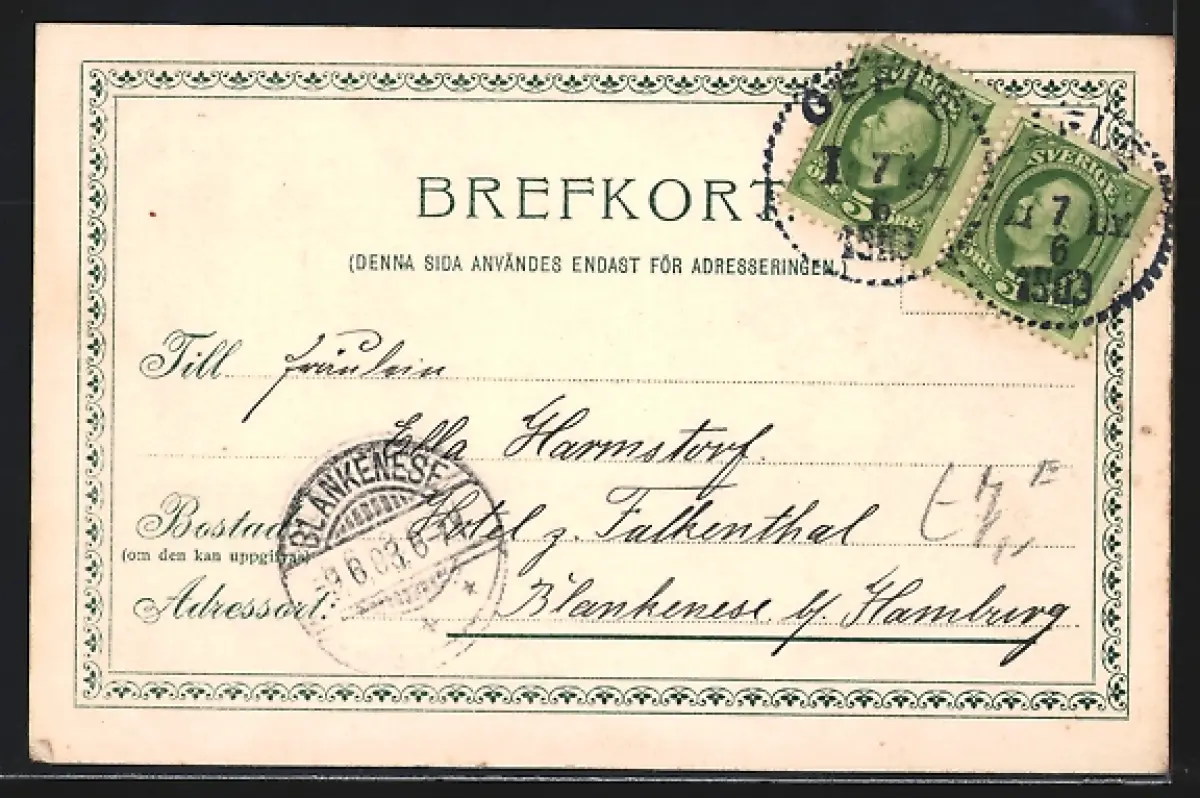 BREFKORT.
(DENNA SIDA ANVÄNDES ENDAST FÖR ADRESSERINGEN.)
SVERIGE
5 ÖRE
SVERIGE
ÖRE 5
GEFLE
7
6
1903
7
6
1903
Till Fräulein
Ella Harmstorf.
Bostad Hotel z. Falkenthal
(om den kan uppgifvas)
Adressort: Blankenese b/ Hamburg
BLANKENESE
-9.6.03.6-7N